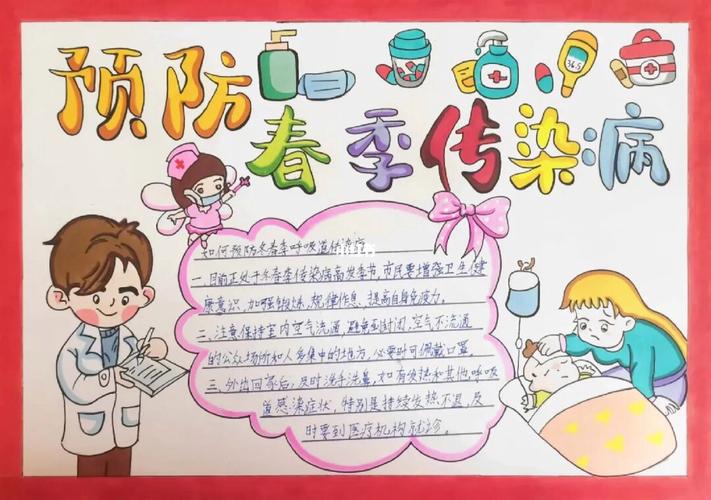 预防
36.5
春季传染病
如何预防冬春季呼吸道传染病
一、目前正处于冬春季传染病高发季节,市民要增强卫生健
康意识、加强锻炼、规律作息、提高自身免疫力。
二、注意保持室内空气流通,避免到封闭,空气不流通
的公众场所和人多集中的地方,必要时可佩戴口罩
三、外出回家后,及时洗手洗鼻,如有发热和其他呼吸
道感染症状,特别是持续发热不退,及
时要到医疗机构就诊。